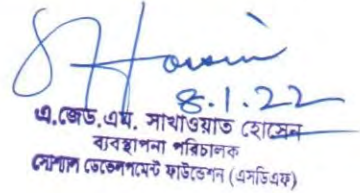 SHossin
8.1.22
এ.জেড.এম. সাখাওয়াত হোসেন
ব্যবস্থাপনা পরিচালক
সোশাল ডেভেলপমেন্ট ফাউন্ডেশন (এসডিএফ)